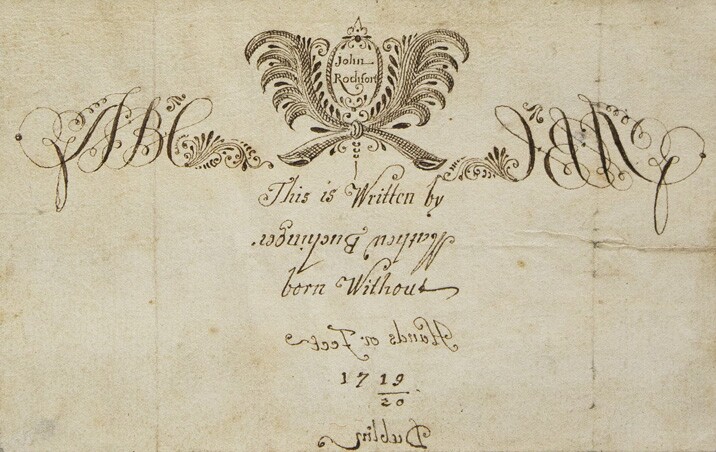 John
Rochfort
ABC ABC
This is Written by
Mathew Buchinger.
born Without
Hands or Feet
17 19/20
Dublin